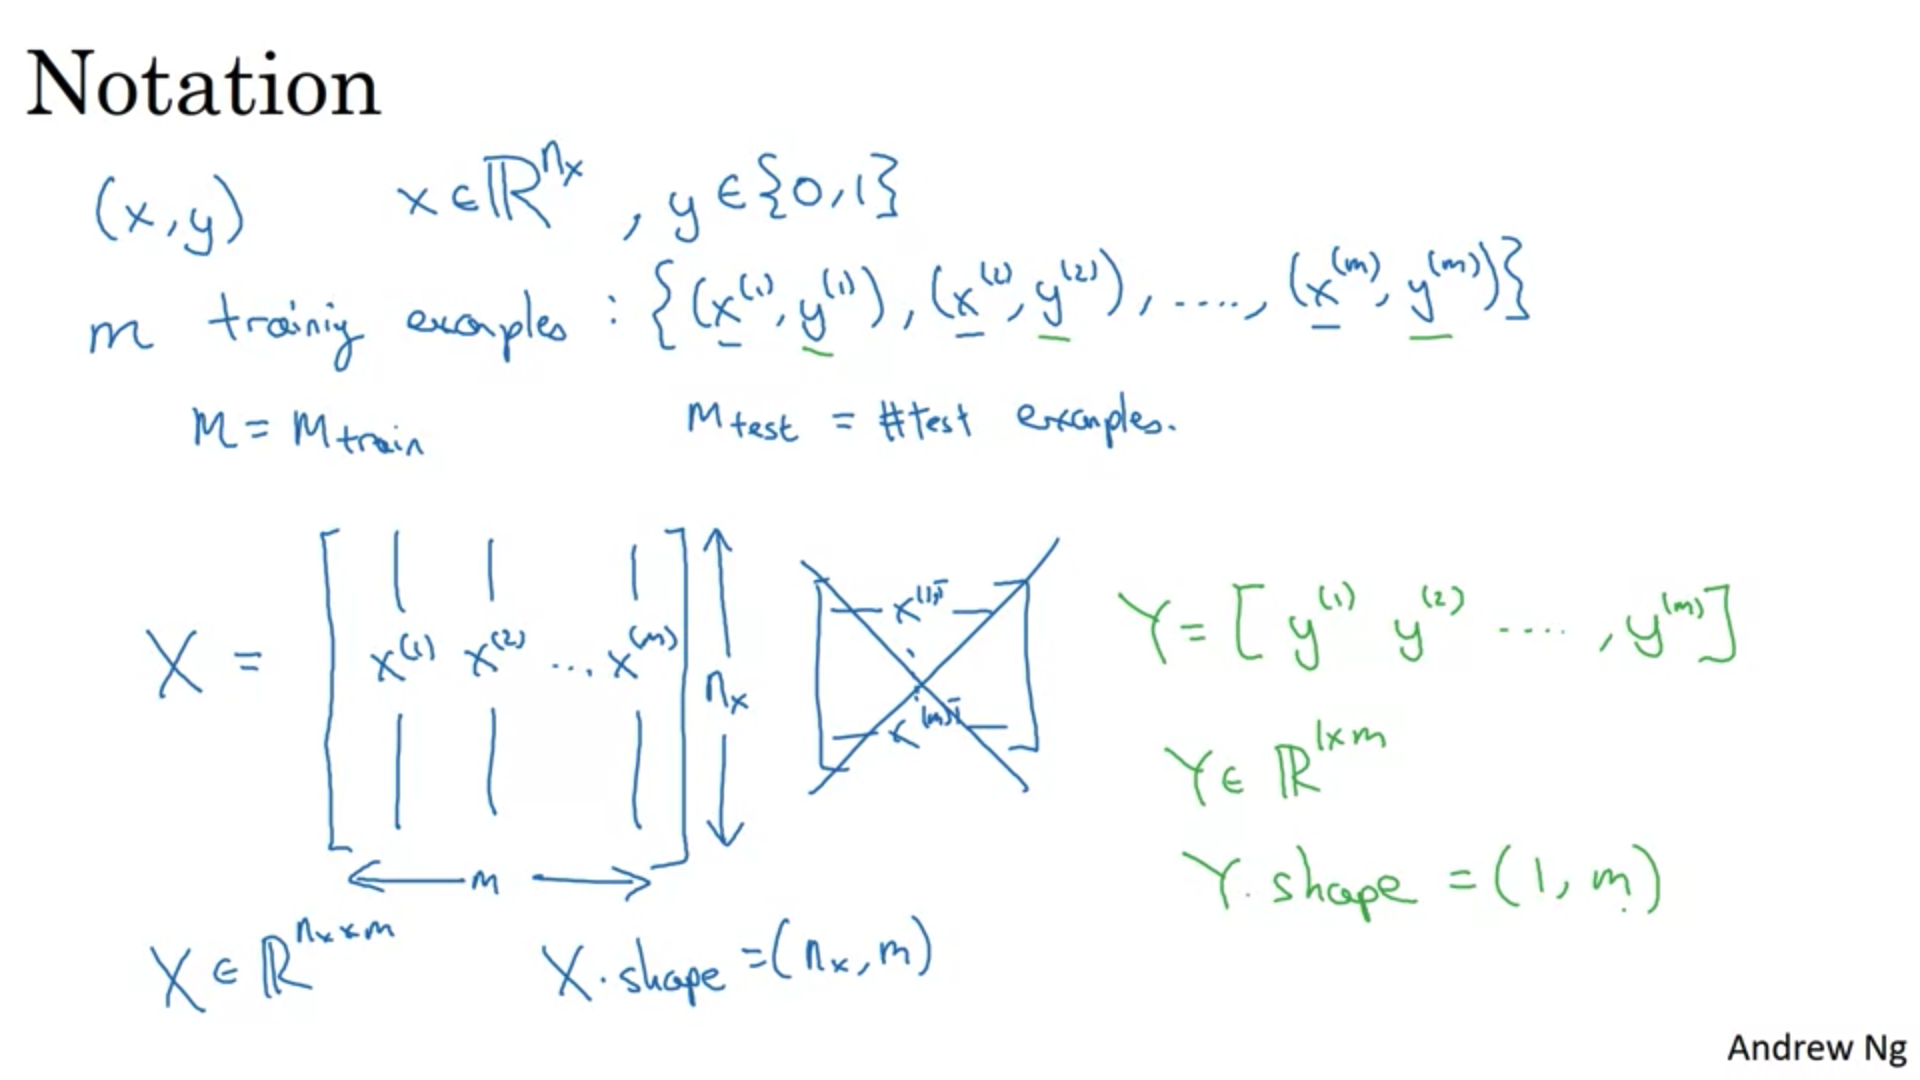 Notation
(x,y) x∈ℝ^{n_x} , y∈{0,1}
m training examples : {(x^{(1)}, y^{(1)}), (x^{(2)}, y^{(2)}), ....., (x^{(m)}, y^{(m)})}
M = M_{train} M_{test} = #test examples.
X = [x^{(1)} x^{(2)} ... x^{(m)}] n_x
x^{(1)T}
x^{(m)T}
m
X ∈ ℝ^{n_x × m} X.shape = (n_x, m)
Y = [y^{(1)} y^{(2)} .... , y^{(m)}]
Y ∈ ℝ^{1×m}
Y.shape = (1, m)
Andrew Ng